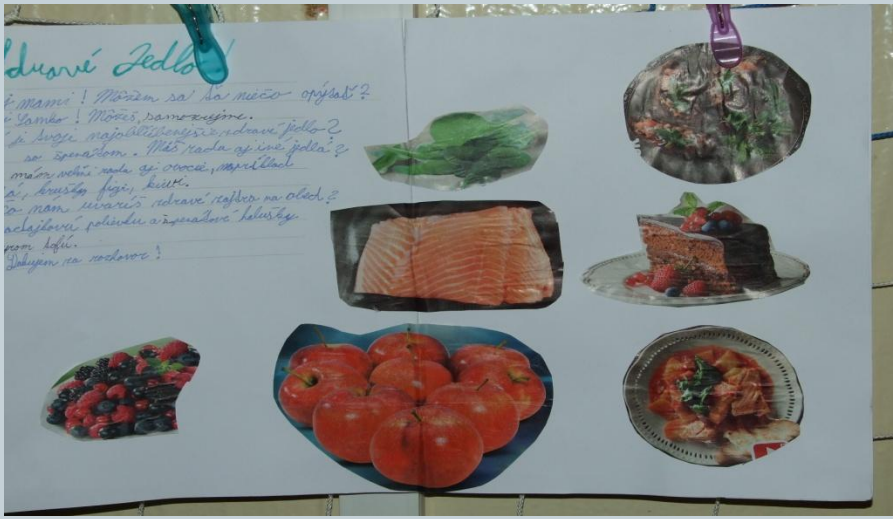 dravé Jedlo!
j mami! Môžem sa ťa niečo opýtať?
Samko! Môžeš, samozrejme.
je tvoje najobľúbenejšie zdravé jedlo?
so špenátom. Máš rada aj iné jedlá?
mám veľmi rada aj ovocie, napríklad
á, hrušky, figi, kiwi.
čo nám uvaríš zdravé zajtra na obed?
polievku a špenátové halušky
tofú.
Ďakujem za rozhovor!